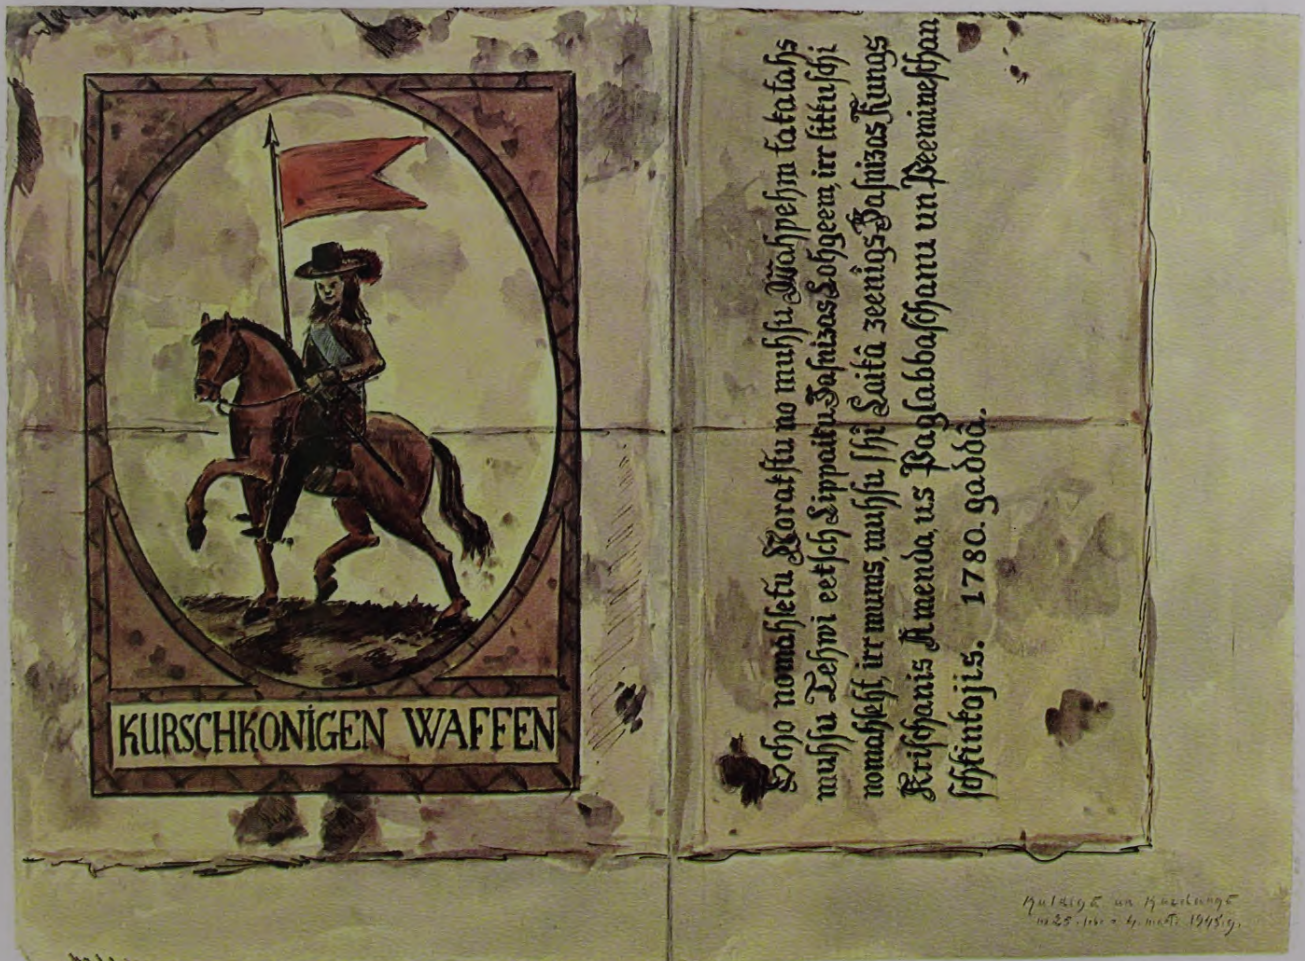 KURSCHKONİGEN WAFFEN
Scho nomahletu Norakstu no muhsu Wahpehm ta ka tahs
muhsu Tehwi eetsch Lippaiku Basnizas Lohgeem, irr likkuschi
nomahleht, irr mums, muhsu schi Laikâ zeenigs Basnizas Kungs
Krischanis Amenda, us Paglabbaschanu un Peemineschan
schkinkojis. 1780. gaddâ.
Kuldīgā un
1945.g.